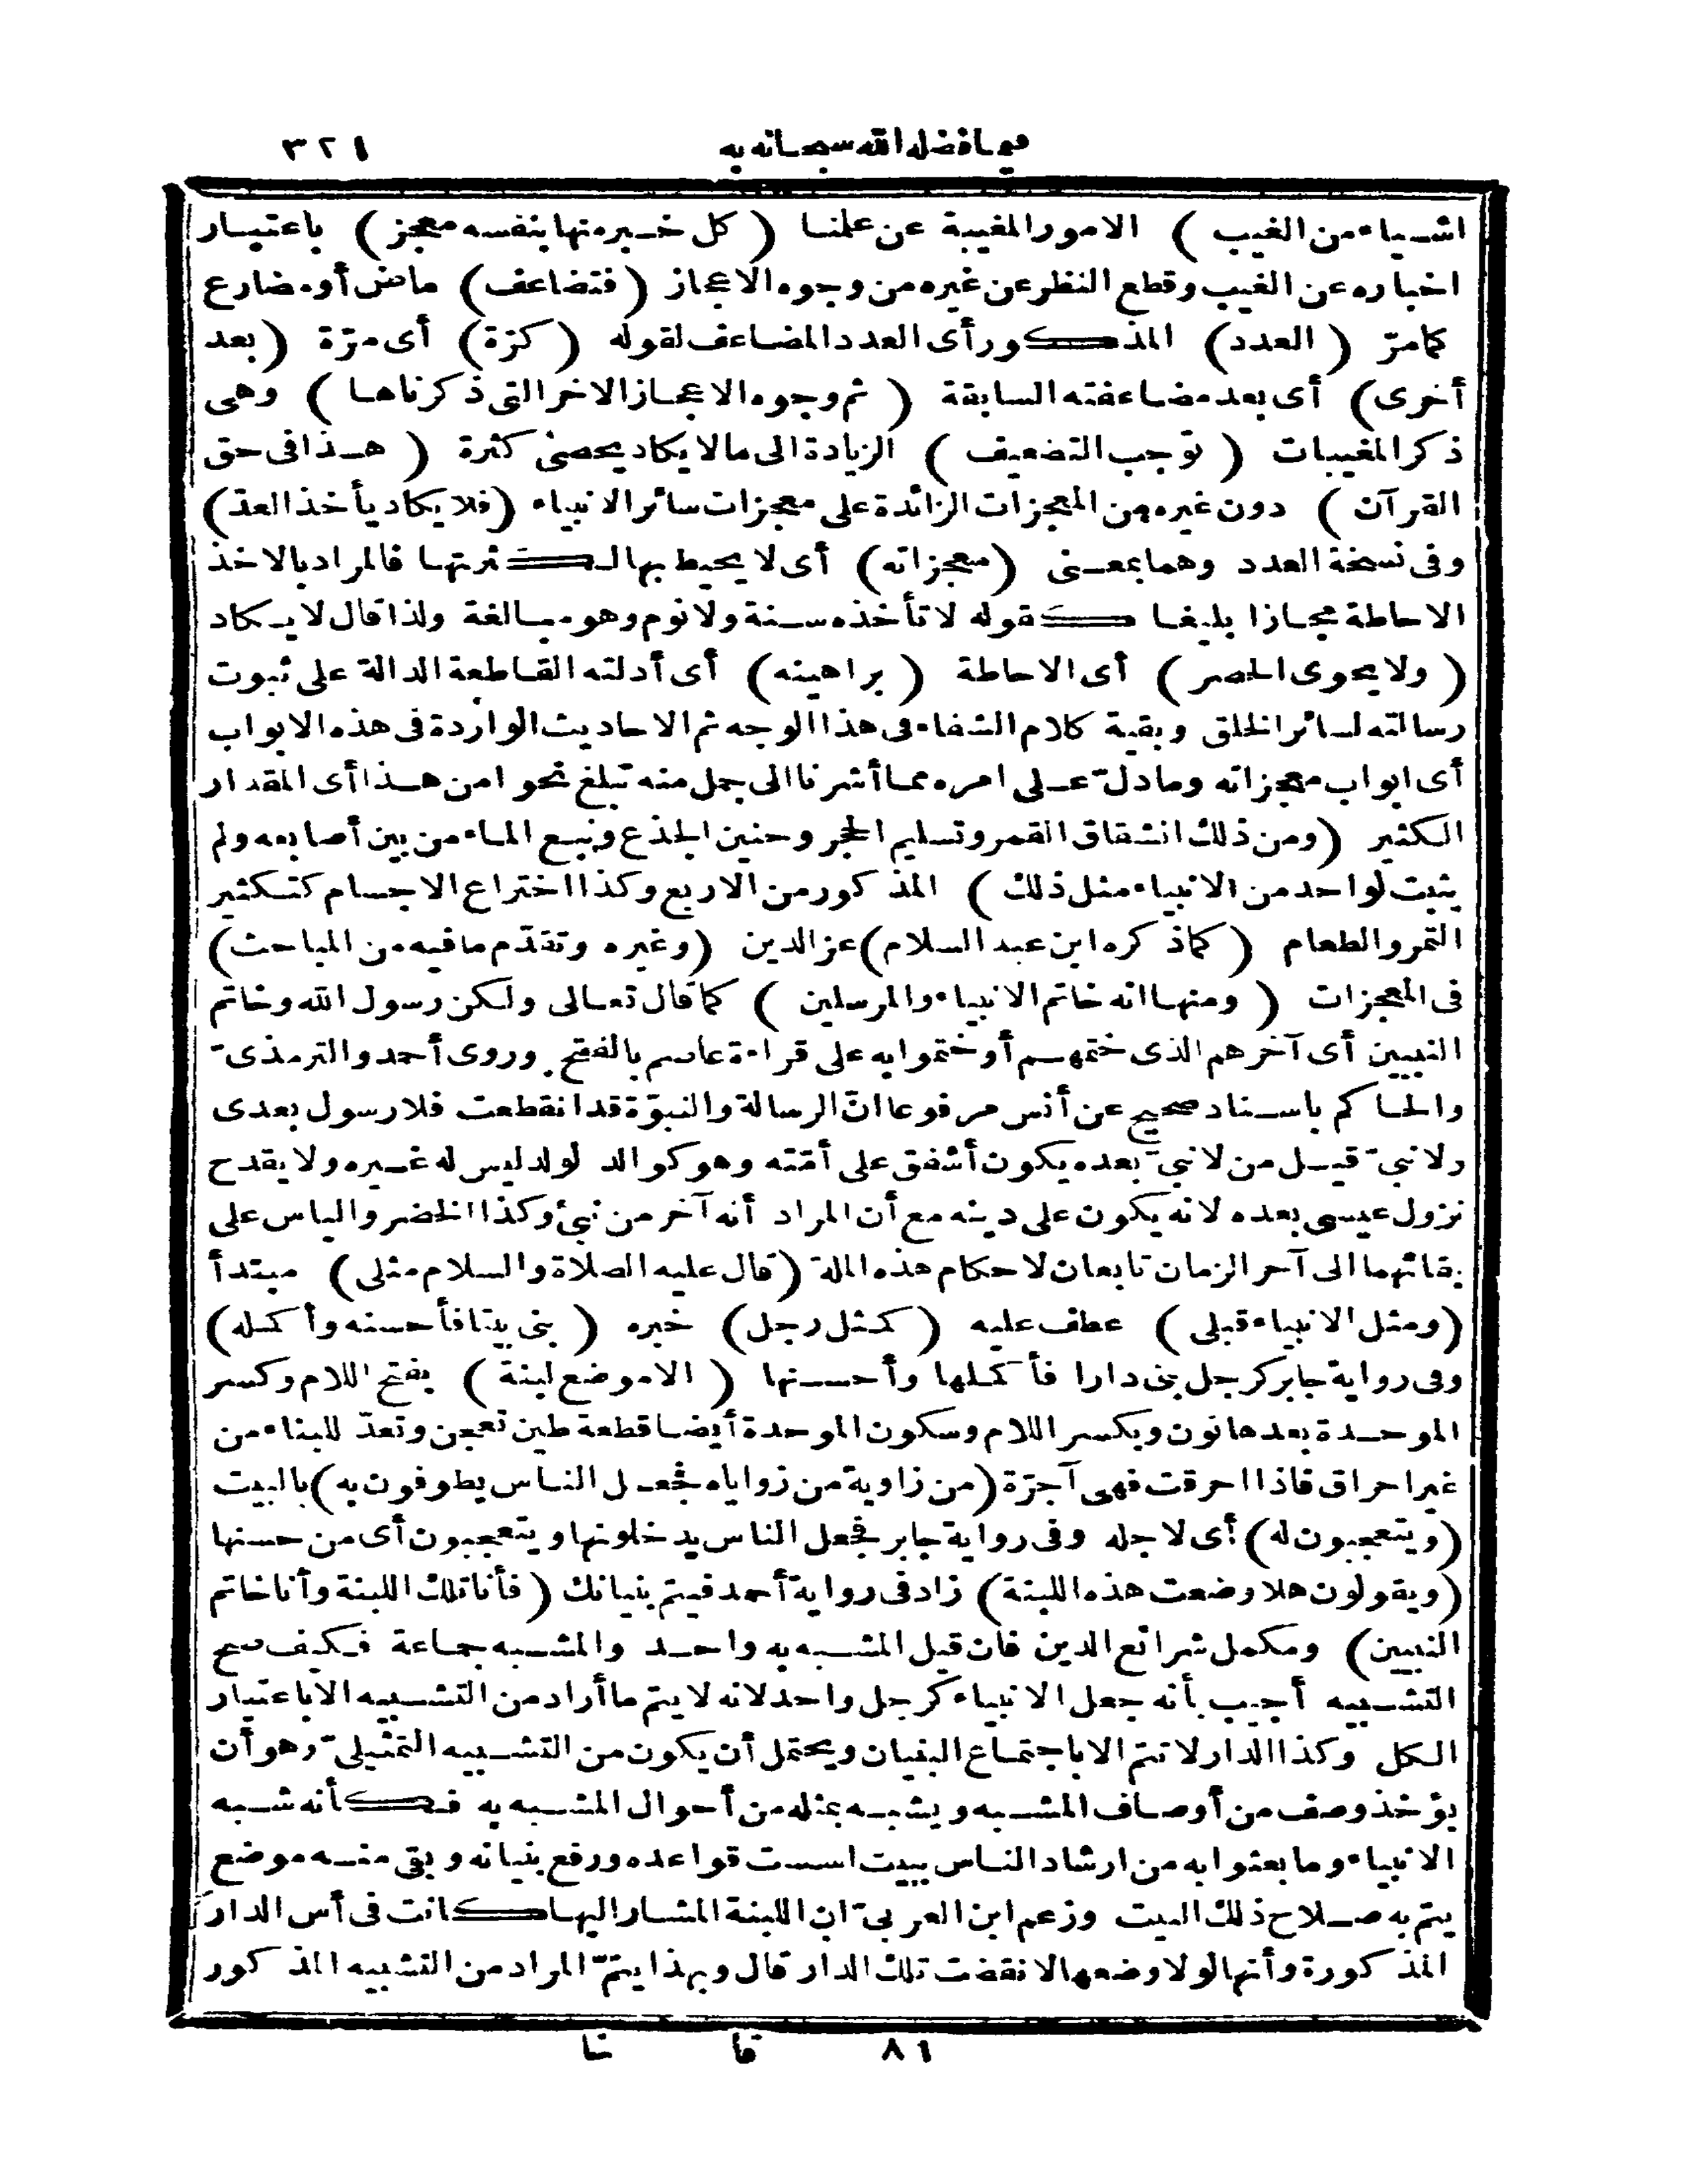 فيما فضله الله سبحانه به ٣٢١
اشياء من الغيب ) الامور المغيبة عن علمنا ( كل خبر منها بنفسه معجز ) باعتبار
اخباره عن الغيب وقطع النظر عن غيره من وجوه الاعجاز ( فتضاعف ) ماض أو مضارع
كمامرّ ( العدد ) المذكور أى العدد المضاعف لقوله ( كرّة ) أى مرّة ( بعد
أخرى ) أى بعد مضاعفته السابقة ( ثم وجوه الاعجاز الاخر التى ذكرناها ) وهى
ذكر المغيبات ( توجب التضعيف ) الزيادة الى مالا يكاد يحصى كثرة ( هذا فى حق
القرآن ) دون غيره من المعجزات الزائدة على معجزات سائر الانبياء ( فلا يكاد يأخذ العدّ )
وفى نسخة العدد وهما بمعنى ( معجزاته ) أى لا يحيط بها لكثرتها فالمراد بالاخذ
الاحاطة مجازا بليغا كقوله لا تأخذه سنة ولا نوم وهو مبالغة ولذا قال لا يكاد
( ولا يحوى الحصر ) أى الاحاطة ( براهينه ) أى أدلته القاطعة الدالة على ثبوت
رسالته لسائر الخلق وبقية كلام الشفاء فى هذا الوجه ثم الاحاديث الواردة فى هذه الابواب
أى ابواب معجزاته ومادلّ على امره مما أشرنا الى جمل منه تبلغ نحوا من هذا أى المقدار
الكثير ( ومن ذلك انشقاق القمر وتسليم الحجر وحنين الجذع ونبع الماء من بين أصابعه ولم
يثبت لواحد من الانبياء مثل ذلك ) المذكور من الاربع وكذا اختراع الاجسام كتكثير
التمر والطعام ( كماذكره ابن عبد السلام ) عز الدين ( وغيره وتقدّم مافيه من المباحث )
فى المعجزات ( ومنها انه خاتم الانبياء والمرسلين ) كما قال تعالى ولكن رسول الله وخاتم
النبيين أى آخرهم الذى ختمهم أو ختموا به على قراءة عاصم بالفتح وروى أحمد والترمذىّ
والحاكم باسناد صحيح عن أنس مرفوعا انّ الرسالة والنبوّة قد انقطعت فلا رسول بعدى
ولا نبىّ قيل من لا نبىّ بعده يكون أشفق على أمّته وهو كوالد لولد ليس له غيره ولا يقدح
نزول عيسى بعده لانه يكون على دينه مع أن المراد أنه آخر من نبئ وكذا الخضر والياس على
بقائهما الى آخر الزمان تابعان لاحكام هذه الملة ( قال عليه الصلاة والسلام مثلى ) مبتدأ
( ومثل الانبياء قبلى ) عطف عليه ( كمثل رجل ) خبره ( بنى بيتا فأحسنه وأكمله )
وفى رواية جابر كرجل بنى دارا فأكملها وأحسنها ( الا موضع لبنة ) بفتح اللام وكسر
الموحدة بعدها نون وبكسر اللام وسكون الموحدة أيضا قطعة طين تعجن وتعدّ للبناء من
غير احراق فاذا احرقت فهى آجرّة ( من زاوية من زواياه فجعل الناس يطوفون به ) بالبيت
( ويتعجبون له ) أى لاجله وفى رواية جابر فجعل الناس يدخلونها ويتعجبون أى من حسنها
( ويقولون هلا وضعت هذه اللبنة ) زاد فى رواية أحمد فيتم بنيانك ( فأنا تلك اللبنة وأنا خاتم
النبيين ) ومكمل شرائع الدين فان قيل المشبه به واحد والمشبه جماعة فكيف صح
التشبيه أجيب بأنه جعل الانبياء كرجل واحد لانه لا يتم ما أراد من التشبيه الا باعتبار
الكل وكذا الدار لا تتم الا باجتماع البنيان ويحتمل أن يكون من التشبيه التمثيلىّ وهو أن
يؤخذ وصف من أوصاف المشبه ويشبه بمثله من أحوال المشبه به فكأنه شبه
الانبياء وما بعثوا به من ارشاد الناس ببيت اسست قواعده ورفع بنيانه وبقى منه موضع
يتم به صلاح ذلك البيت وزعم ابن العربىّ ان اللبنة المشار اليها كانت فى أس الدار
المذكورة وأنها لولا وضعها لانقضت تلك الدار قال وبهذا يتمّ المراد من التشبيه المذكور
٨١ قا نا